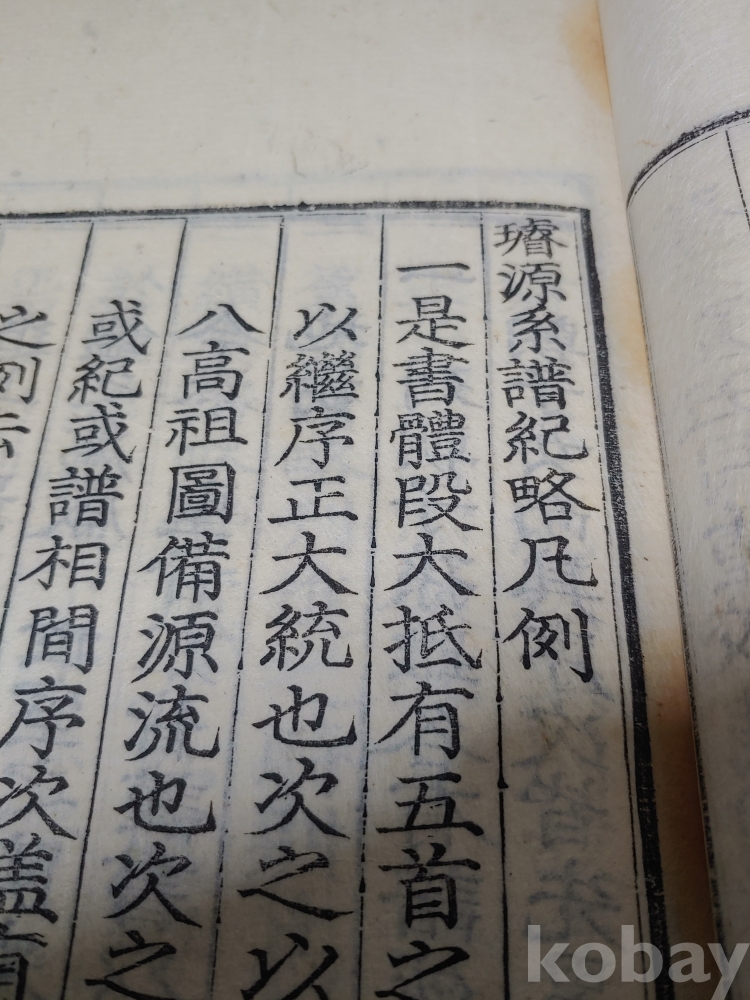 璿源系譜紀略凡例
一是書體段大抵有五首之
以繼序正大統也次之以
八高祖圖備源流也次之
或紀或譜相間序次盖有
之例云
kobay